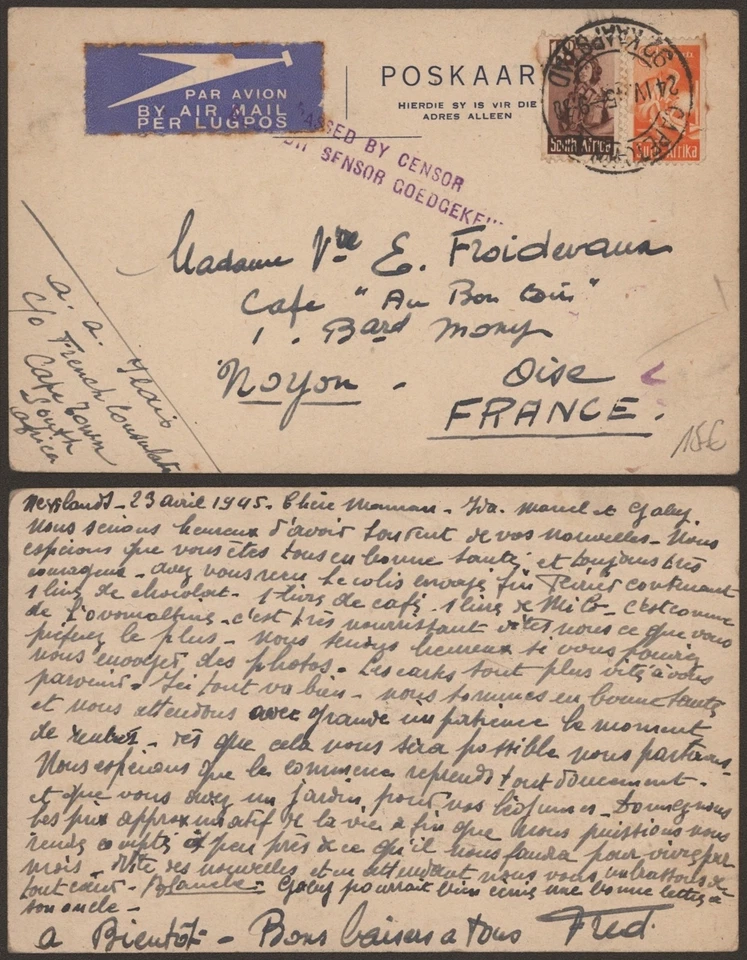 PAR AVION
BY AIR MAIL
PER LUGPOS
POSKAAR
HIERDIE SY IS VIR DIE
ADRES ALLEEN
South Africa
Suid-Afrika
24 IV 45
PASSED BY CENSOR
DEUR SENSOR GOEDGEKEUR
Madame Vve E. Froidevaux
Cafe "Au Bon Coin"
1. Bard Mony
Noyon - Oise
FRANCE.
15€
A. A.
c/o French Consulate
Cape Town
South
Africa
Newlands - 23 avril 1945. Chère Maman - Ida. Marcel et Gaby.
Nous serions heureux d'avoir souvent de vos nouvelles - Nous
espérons que vous êtes tous en bonne santé, et toujours très
courageux - avez vous reçu le colis envoyé fin Février contenant
1 livre de chocolat - 1 livre de café, 1 livre de Milo - c'est comme
de l'ovomaltine - c'est très nourrissant dites nous ce que vous
préférez le plus - nous serions heureux si vous pouviez
nous envoyer des photos - Les cartes sont plus vite à vous
parvenir - Ici tout va bien - nous sommes en bonne santé
et nous attendons avec grande impatience le moment
de rentrer - dès que cela nous sera possible nous partirons -
Nous espérons que le commerce reprend tout doucement -
et que vous avez un jardin pour vos légumes - Donnez nous
les prix approximatif de la vie à fin que nous puissions nous
rendre compte à peu près de ce qu'il nous faudra pour vivre par
mois - des nouvelles et en attendant nous vous embrassons de
tout cœur - Blanche - Gaby pourrait bien écrire une bonne lettre à
son oncle -
A Bientôt - Bons baisers a tous Fred.